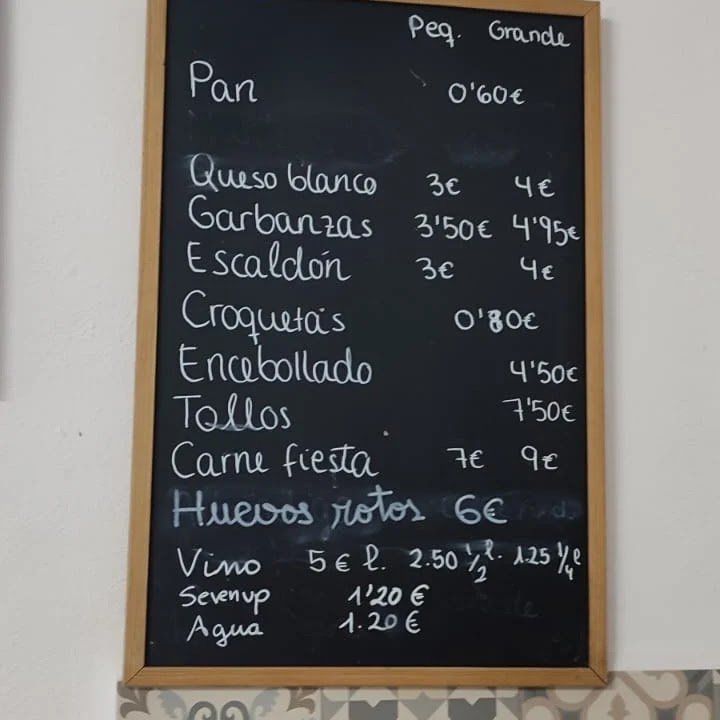 Peq. Grande
Pan 0'60€
Queso blanco 3€ 4€
Garbanzas 3'50€ 4'95€
Escaldón 3€ 4€
Croquetas 0'80€
Encebollado 4'50€
Tollos 7'50€
Carne fiesta 7€ 9€
Huevos rotos 6€
Vino 5€ l. 2.50 ½ l. 1.25 ¼ l
Sevenup 1'20€
Agua 1.20€